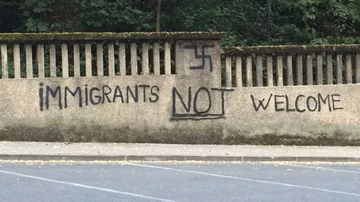 iMMIGRANTS NOT WELCOME